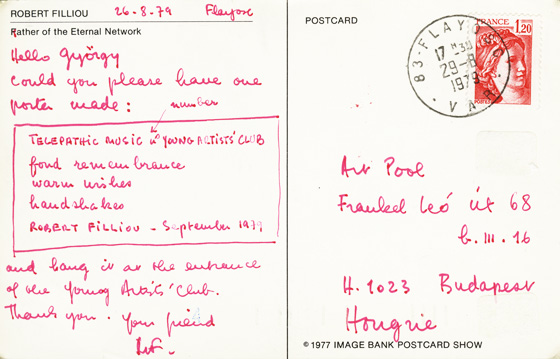 ROBERT FILLIOU 26-8-79 Flayosc
Father of the Eternal Network
Hello György
Could you please have one
poster made:
number
TELEPATHIC MUSIC n° YOUNG ARTISTS' CLUB
fond remembrance
warm wishes
handshakes
ROBERT FILLIOU - September 1979
and hang it at the entrance
of the Young Artists' Club.
Thank you. Your friend
POSTCARD
83-FLAYOSC
17H30
29-8
1979
VAR
FRANCE
1,20
Art Pool
Frankel Leó út 68
b.III.16
H.1023 Budapest
Hongrie
© 1977 IMAGE BANK POSTCARD SHOW